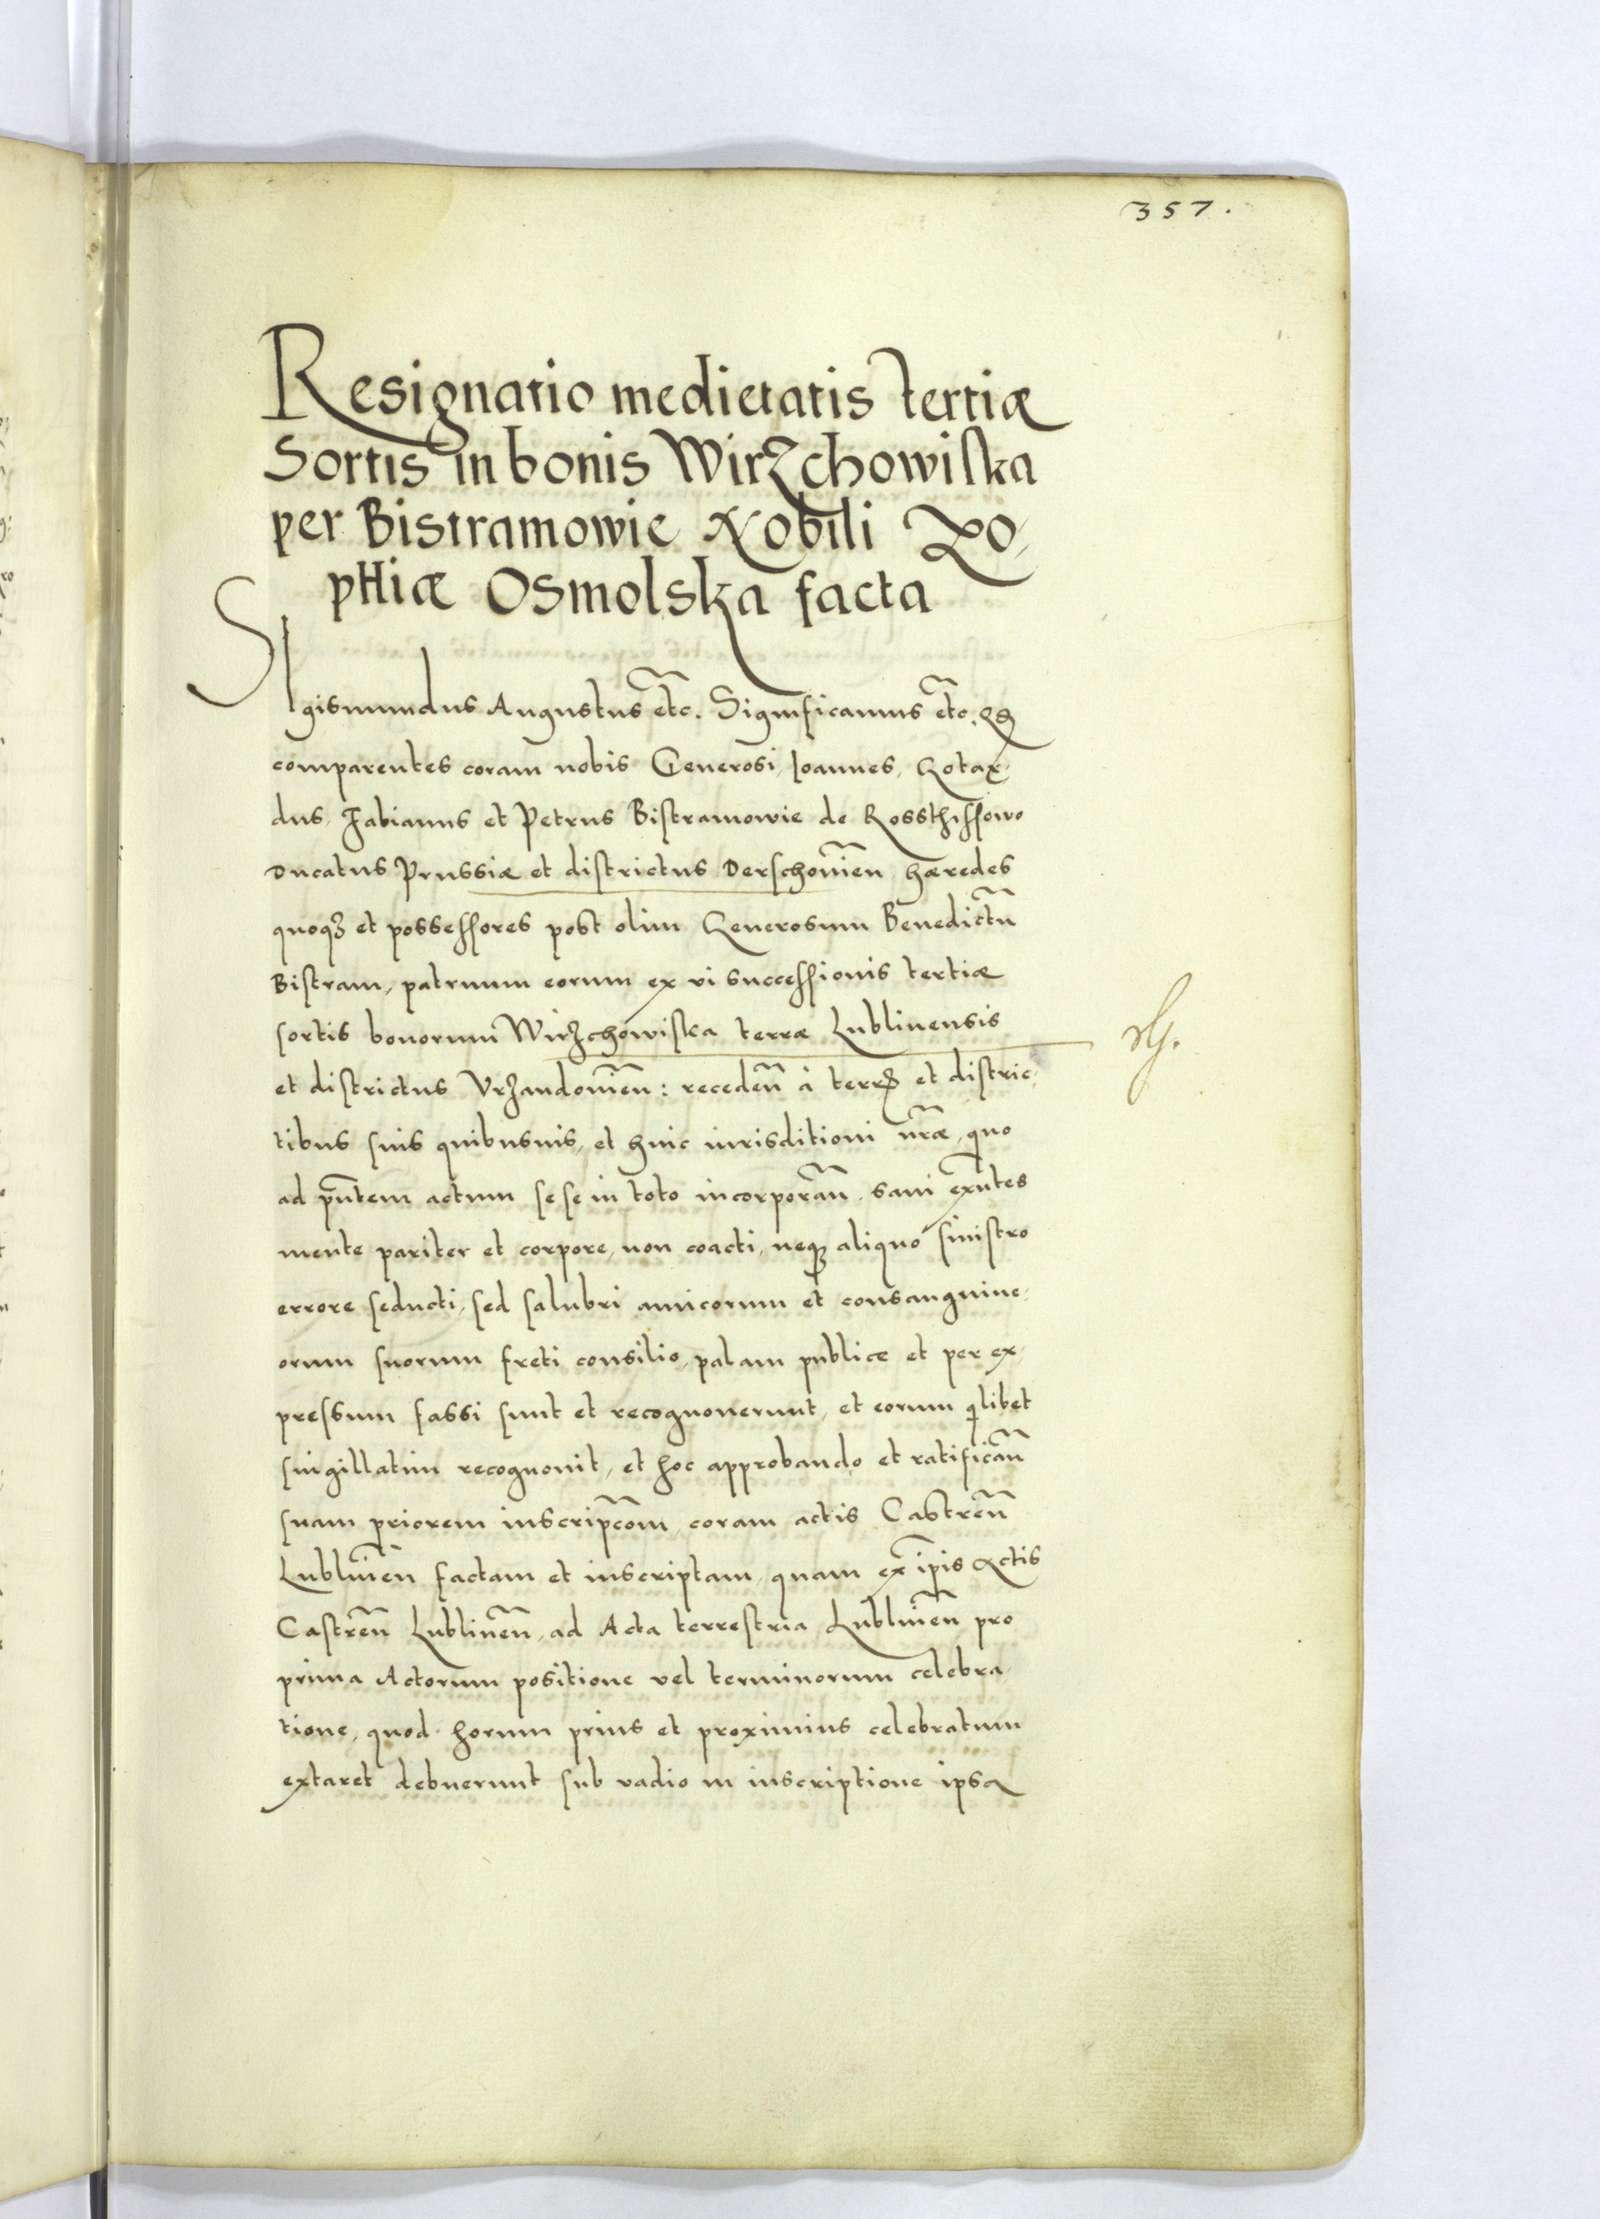 357.
Resignatio medietatis tertiæ
Sortis in bonis Wirzchowiska
per Bistramowie Nobili Zo,
phiæ Osmolska facta
SIgismundus Augustus etc̃. Significamus etc̃. Qꝫ
comparentes coram nobis Generosi, Ioannes, Gotar,
dus, Fabianus et Petrus Bistramowie de Rossthissowo
Ducatus Prussiæ et districtus Derschouien̄ hæredes
quoqꝫ et possessores post olim Generosum Benedictū
Bistram, patruum eorum ex vi successionis tertiæ
sortis bonorum Wirzchowiska terræ Lublinensis
et districtus Vrzandouien̄: receden̄ à terrꝫ et distric,
tibus suis quibusuis, et huic iurisditioni nr̄æ, quo
ad pn̄tem actum sese in toto incorporan̄, sani exn̄tes
mente pariter et corpore, non coacti, neqꝫ aliquo sinistro
errore seducti, sed salubri amicorum et consanguine,
orum suorum freti consilio, palam publice et per ex,
pressum fassi sunt et recognouerunt, et eorum qlibet
singillatim recognouit, et hoc approbando et ratifican̄
suam priorem inscripc̄om, coram actis Castren̄
Lublinen̄ factam et inscriptam, quam ex ip̄is Actis
Castren̄ Lublinen̄, ad Acta terrestria Lublinen̄ pro
prima Actorum positione vel terminorum celebra,
tione, quod horum prius et proximius celebratum
extaret debuerunt sub vadio in inscriptione ipsa